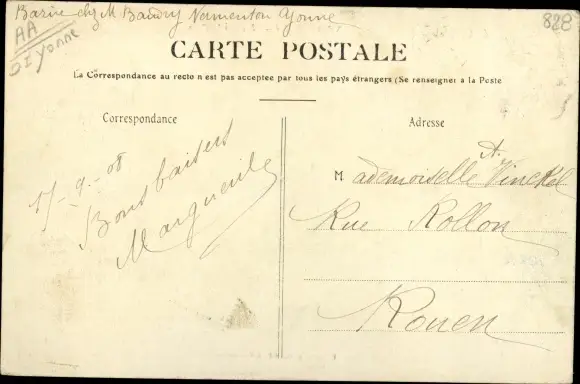 Bazin chez M Baudry Vermenton Yonne
828
AA
Yonne
CARTE POSTALE
La Correspondance au recto n'est pas acceptée par tous les pays étrangers (Se renseigner à la Poste
Correspondance
17-9-08
Bons baisers
Marguerite
Adresse
Mademoiselle A. Vinckel
Rue Rollon
Rouen